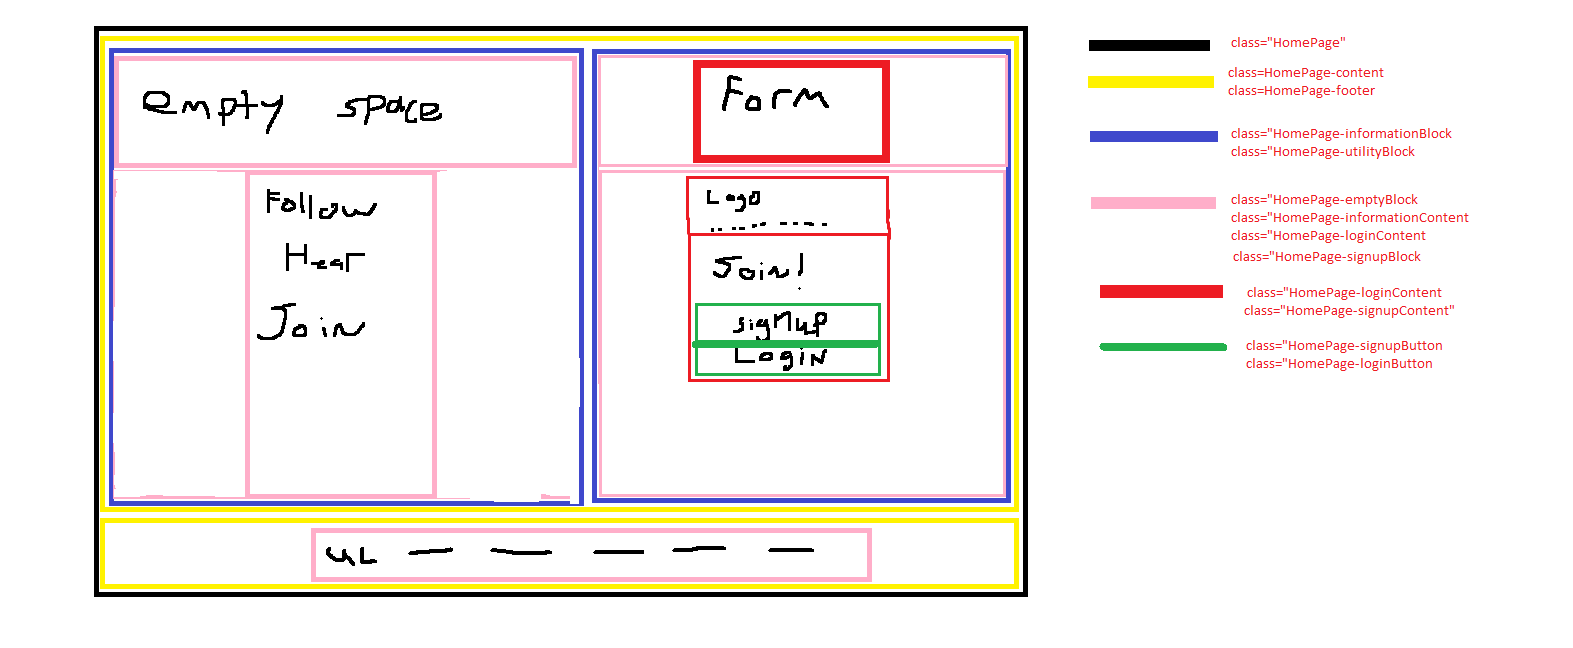 empty space
Follow
Hear
Join
Form
Logo
Join!
signup
Login
UL
class="HomePage"
class=HomePage-content
class=HomePage-footer
class="HomePage-informationBlock
class="HomePage-utilityBlock
class="HomePage-emptyBlock
class="HomePage-informationContent
class="HomePage-loginContent
class="HomePage-signupBlock
class="HomePage-loginContent
class="HomePage-signupContent"
class="HomePage-signupButton
class="HomePage-loginButton